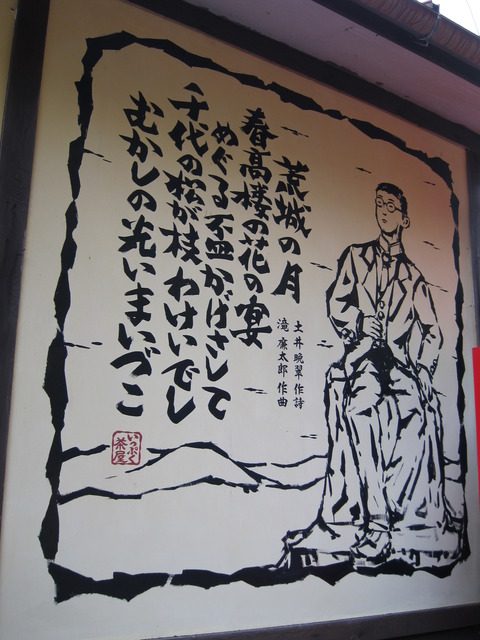 荒城の月
土井晩翠 作詩
滝廉太郎 作曲
春高楼の花の宴
めぐる盃かげさして
千代の松が枝わけいでし
むかしの光いまいづこ
いっぷく
茶屋